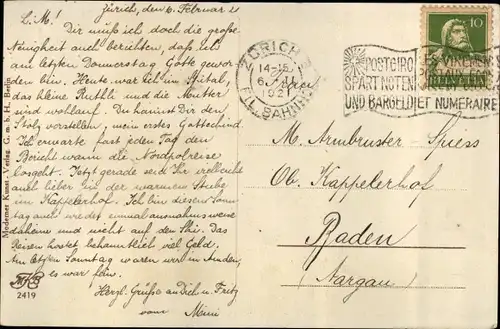 Zürich, den 6. Februar 21
L. M! Dir muß ich doch die große
Neuigkeit auch berichten, daß ich
am letzten Donnerstag Gotte gewor-
den bin. Heute war ich im Spital,
das kleine Ruthli und die Mutter
sind wohlauf. Du kannst Dir den
Stolz vorstellen, mein erstes Gottechind.
Ich erwarte fast jeden Tag den
Bericht wann die Nordpolreise
losgeht. Jetzt gerade seid Ihr vielleicht
auch lieber in der warmen Stube
im Kappelerhof. Ich bin diesen Sonn-
tag auch wieder einmal ausnahmsweise
daheim und nicht auf den Ski. Das
Reisen kostet bekanntlich viel Geld.
Am letzten Sonntag waren wir in Amden,
es war fein.
Herzl. Grüße an Dich u. Fritz
vom Mimi
Moderner Kunst-Verlag G. m. b. H., Berlin
2419
ZÜRICH
14-15
6. II.
FIL. BAHNHOF
POSTGIRO
SPART NOTEN
UND BARGELD
ET NUMERAIRE
10
HELVETIA
M. Armbruster
Ob. Kappelerhof
Baden
Aargau